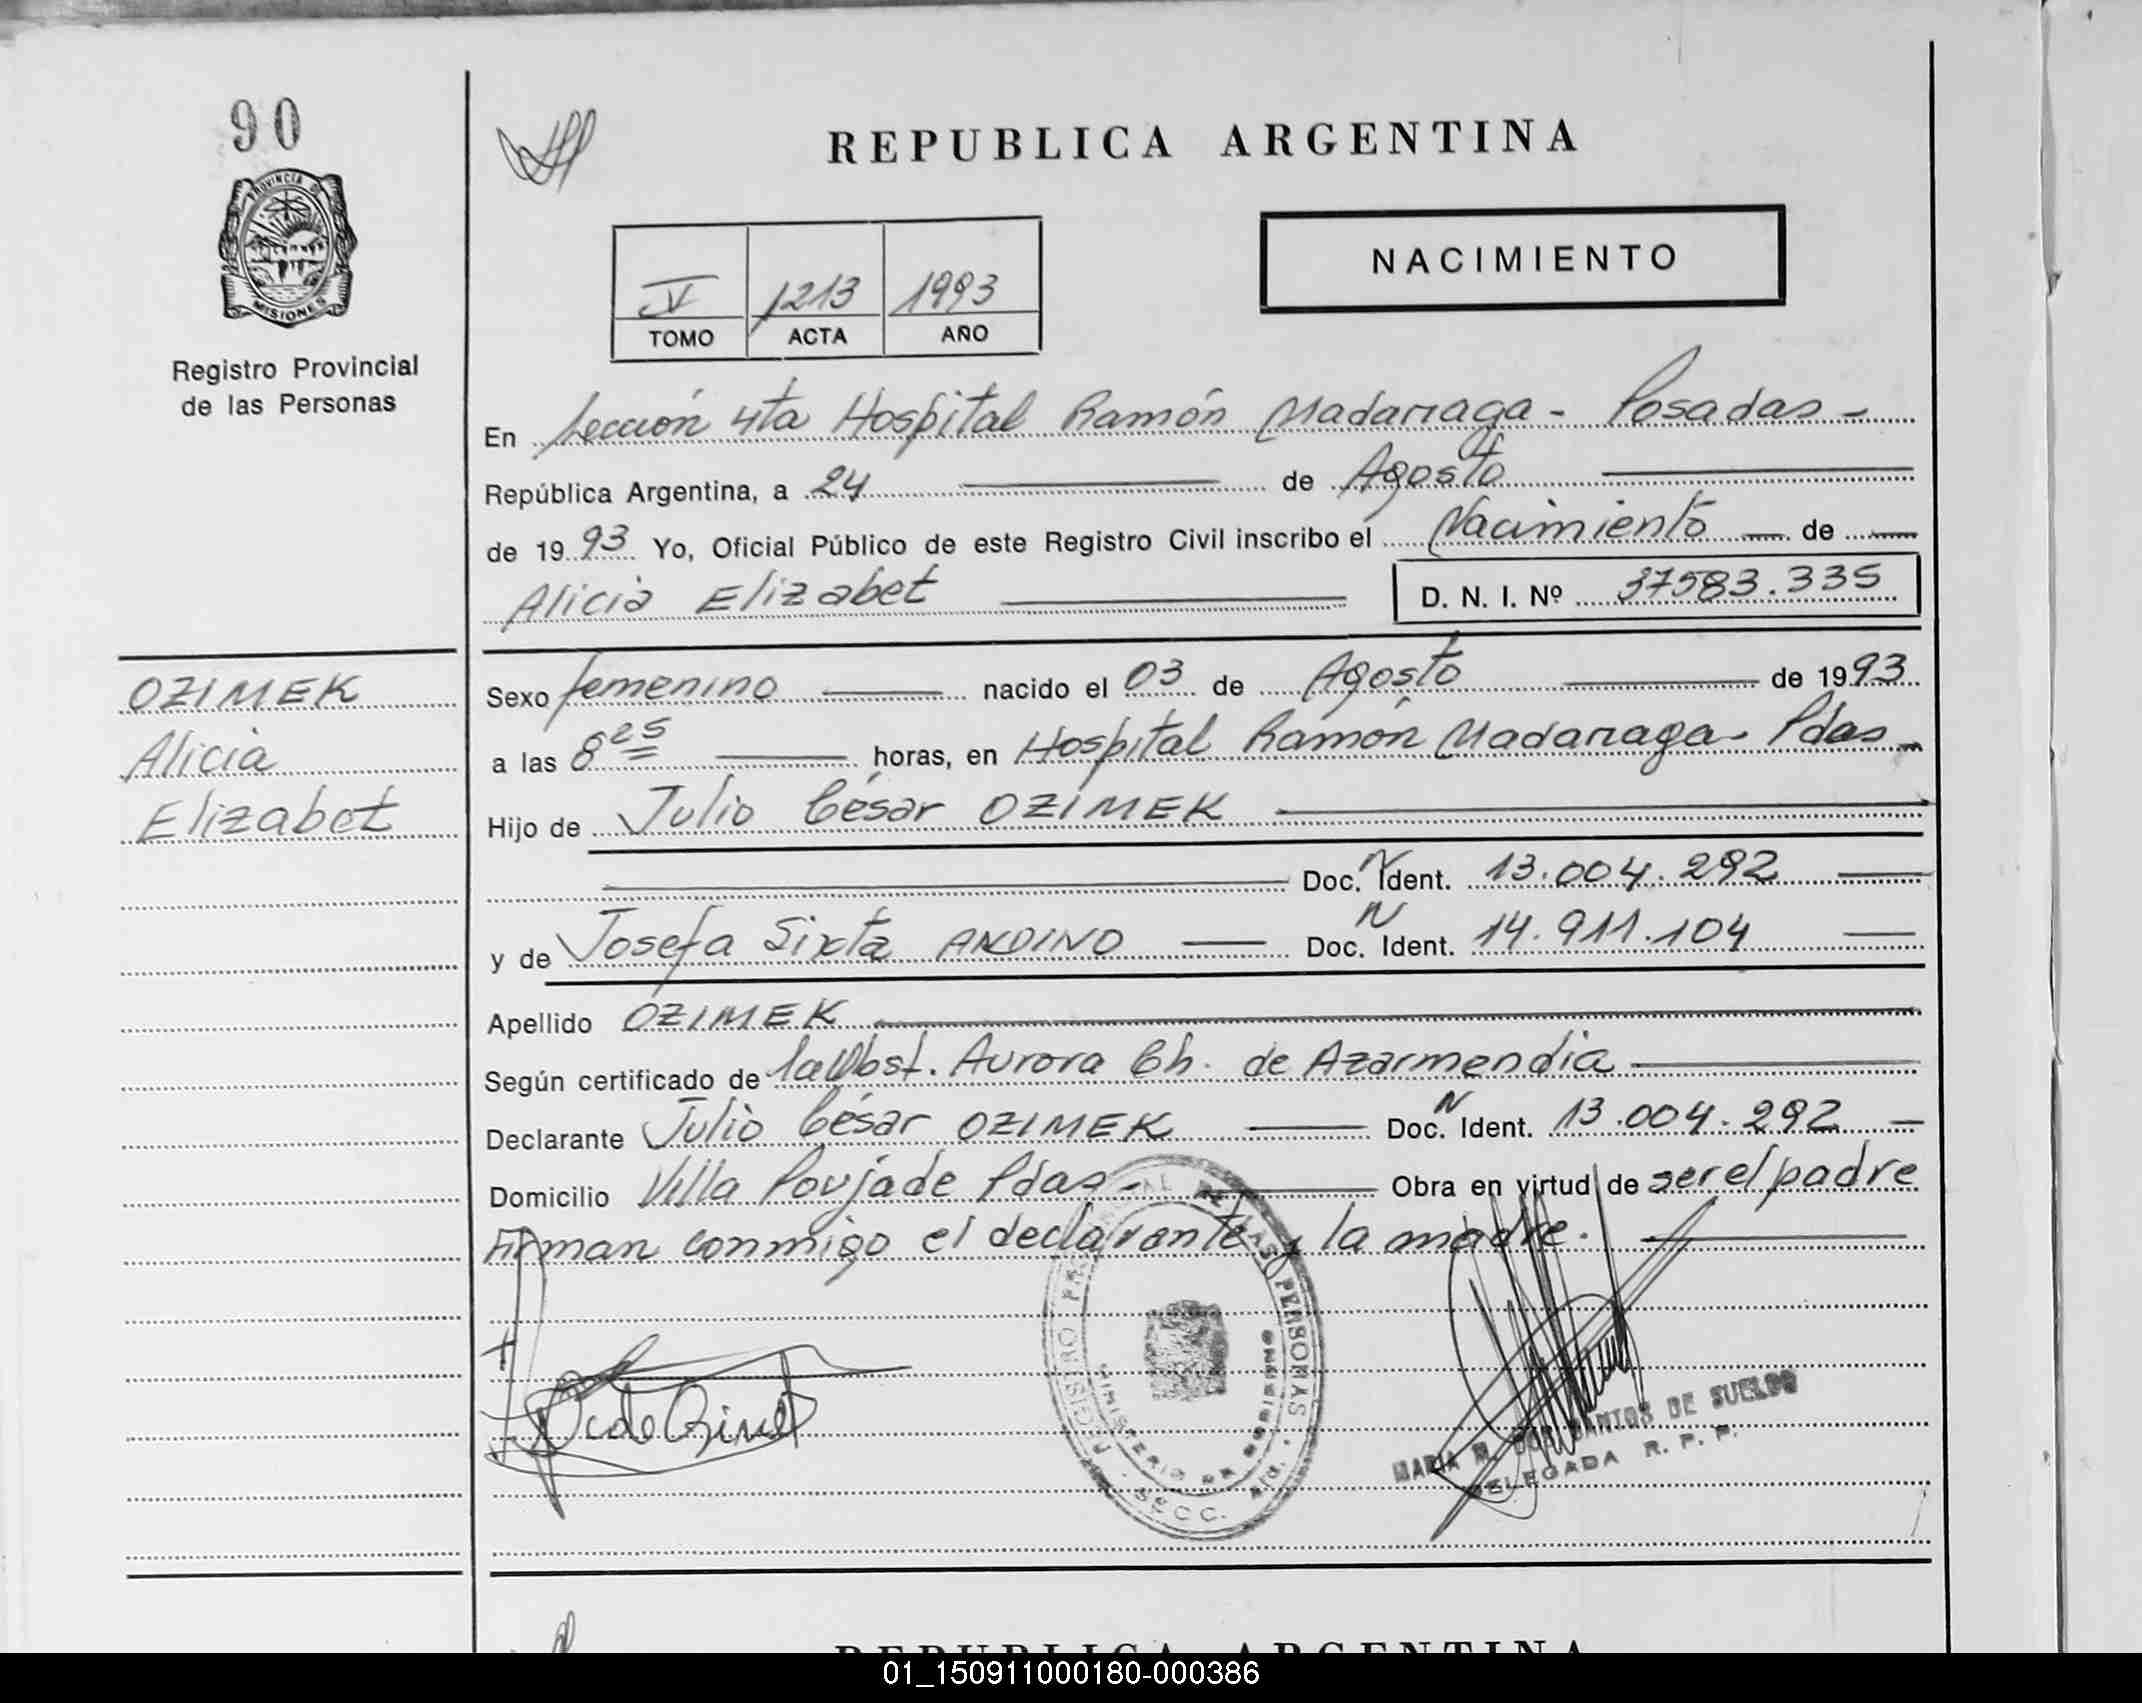 90
PROVINCIA DE
MISIONES
Registro Provincial
de las Personas
REPUBLICA ARGENTINA
NACIMIENTO
V 1213 1993
TOMO ACTA AÑO
En Sección 4ta Hospital Ramón Madariaga - Posadas -
República Argentina, a 24 de Agosto
de 1993 Yo, Oficial Público de este Registro Civil inscribo el Nacimiento de
Alicia Elizabet D. N. I. Nº 37583.335
OZIMEK
Alicia
Elizabet
Sexo femenino nacido el 03 de Agosto de 1993
a las 8 25 horas, en Hospital Ramón Madariaga - Pdas -
Hijo de Julio César OZIMEK
Doc. N Ident. 13.004.292
y de Josefa Sixta ANDINO Doc. N Ident. 14.911.104
Apellido OZIMEK
Según certificado de la Obst. Aurora Ch. de Azarmendia
Declarante Julio César OZIMEK Doc. N Ident. 13.004.292
Domicilio Villa Poujade Pdas - Obra en virtud de ser el padre
Firman conmigo el declarante y la madre.
REGISTRO PROVINCIAL DE LAS PERSONAS
MINISTERIO DE GOBIERNO
SECC.
MARIA M. DOS SANTOS DE SUELDO
DELEGADA R. P. P.
REPUBLICA ARGENTINA
01_150911000180-000386